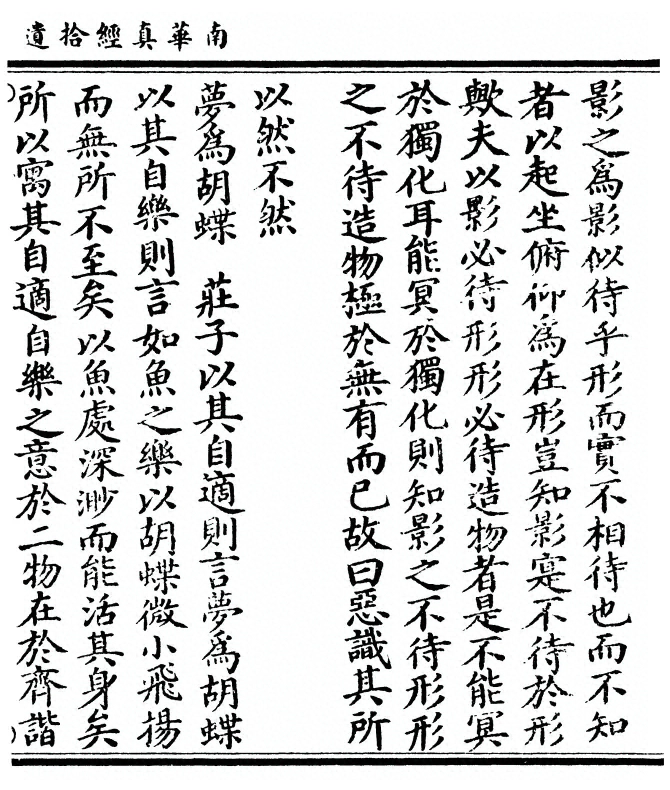 南華真經拾遺
影之爲影似待乎形而實不相待也而不知
者以起坐俯仰爲在形豈知影寔不待於形
歟夫以影必待形形必待造物者是不能冥
於獨化耳能冥於獨化則知影之不待形形
之不待造物極於無有而已故曰惡識其所
以然不然
夢爲胡蝶　莊子以其自適則言夢爲胡蝶
以其自樂則言如魚之樂以胡蝶微小飛揚
而無所不至矣以魚處深渺而能活其身矣
所以寓其自適自樂之意於二物在於齊諧